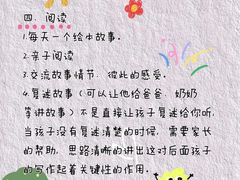 四. 阅读
1.每天一个绘本故事。
2.亲子阅读
3.交流故事情节，彼此的感受。
4.复述故事（可以让他给爸爸、奶奶
等讲故事）不是直接让孩子复述给你听，
当孩子没有复述清楚的时候，需要家长
的帮助，思路清晰的讲出这对后面孩子
的写作起着关键性的作用。